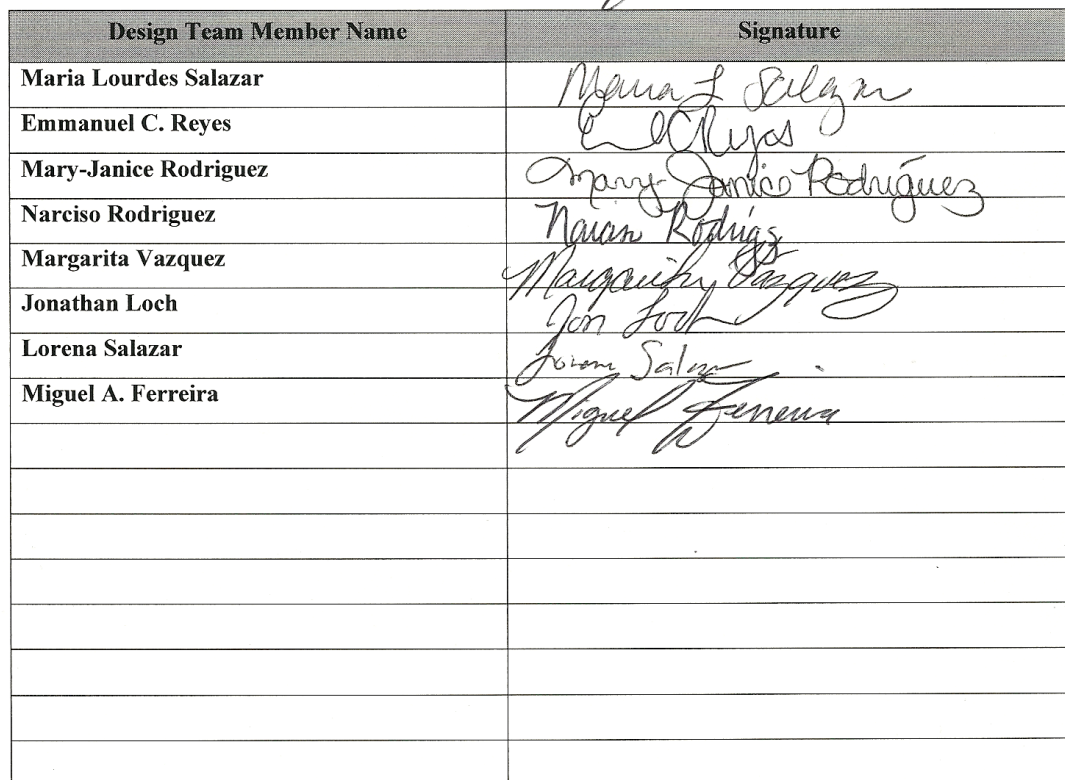 Design Team Member Name Signature
Maria Lourdes Salazar Maria L Salazar
Emmanuel C. Reyes C Reyes
Mary-Janice Rodriguez Mary-Janice Rodríguez
Narciso Rodriguez Rodrigz
Margarita Vazquez Margarita Vazquez
Jonathan Loch Jon Loch
Lorena Salazar Lorena Salazar
Miguel A. Ferreira Miguel Ferreira